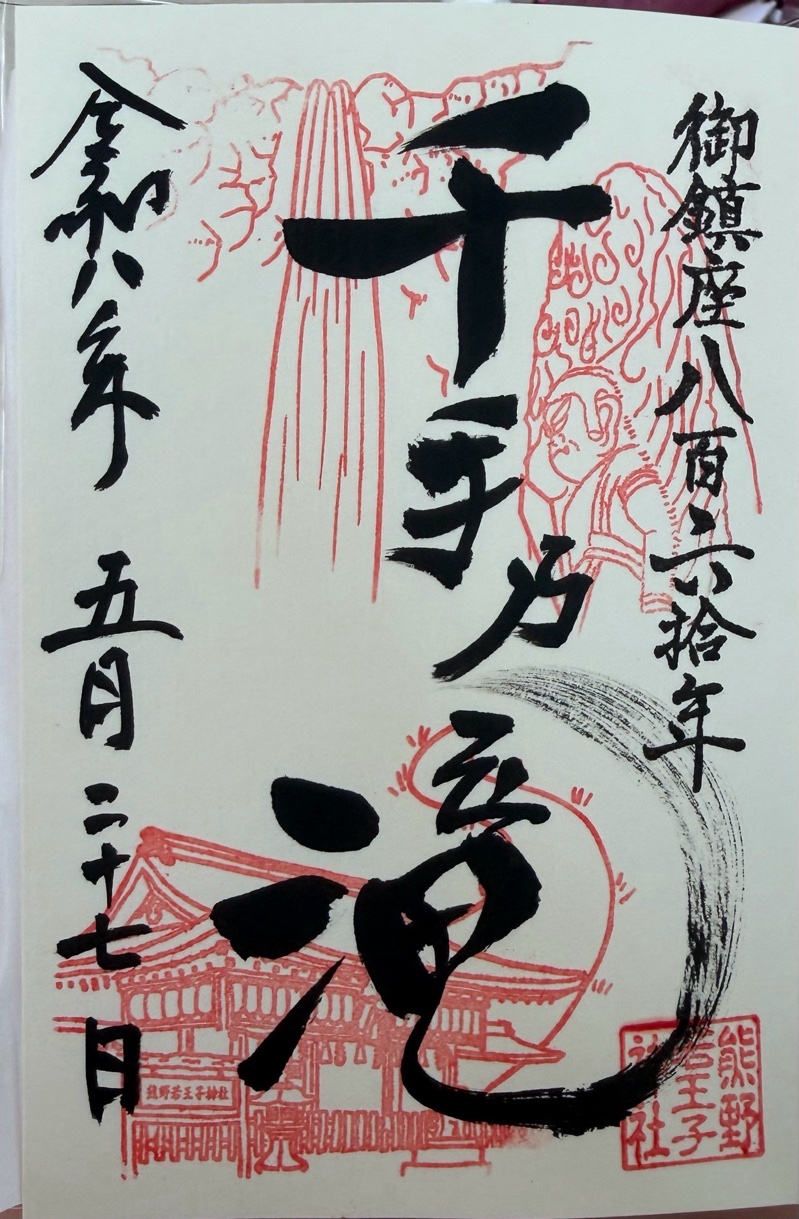 御鎮座八百六拾年
千手乃滝
令和八年 五月二十七日
熊野若王子神社
熊野
若王子
神社